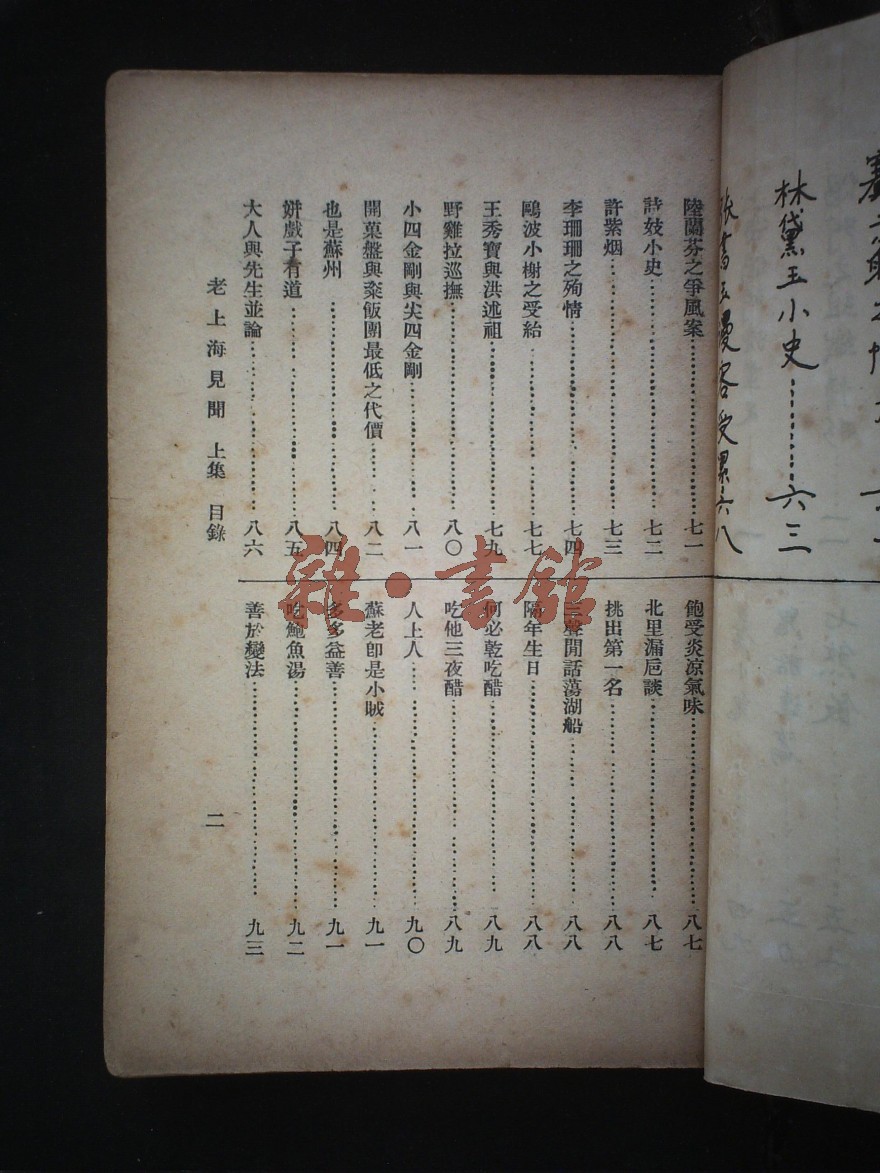 林黛玉小史…………六三
張書玉慢客受累六八
陸蘭芬之爭風案…………七一
詩妓小史…………七二
許紫烟…………七三
李珊珊之殉情…………七四
鷗波小榭之受給…………七七
王秀寶與洪述祖…………七九
野雞拉巡撫…………八〇
小四金剛與尖四金剛…………八一
開菓盤與粢飯團最低之代價…………八二
也是蘇州…………八四
姘戲子有道…………八五
大人與先生並論…………八六
飽受炎凉氣味…………八七
北里漏卮談…………八七
挑出第一名…………八八
三聲閒話蕩湖船…………八八
隔年生日…………八八
何必乾吃醋…………八九
吃他三夜醋…………八九
人上人…………九〇
蘇老卽是小賊…………九一
多多益善…………九一
吃鮑魚湯…………九二
善於變法…………九三
老上海見聞 上集 目錄
二
雜·書館